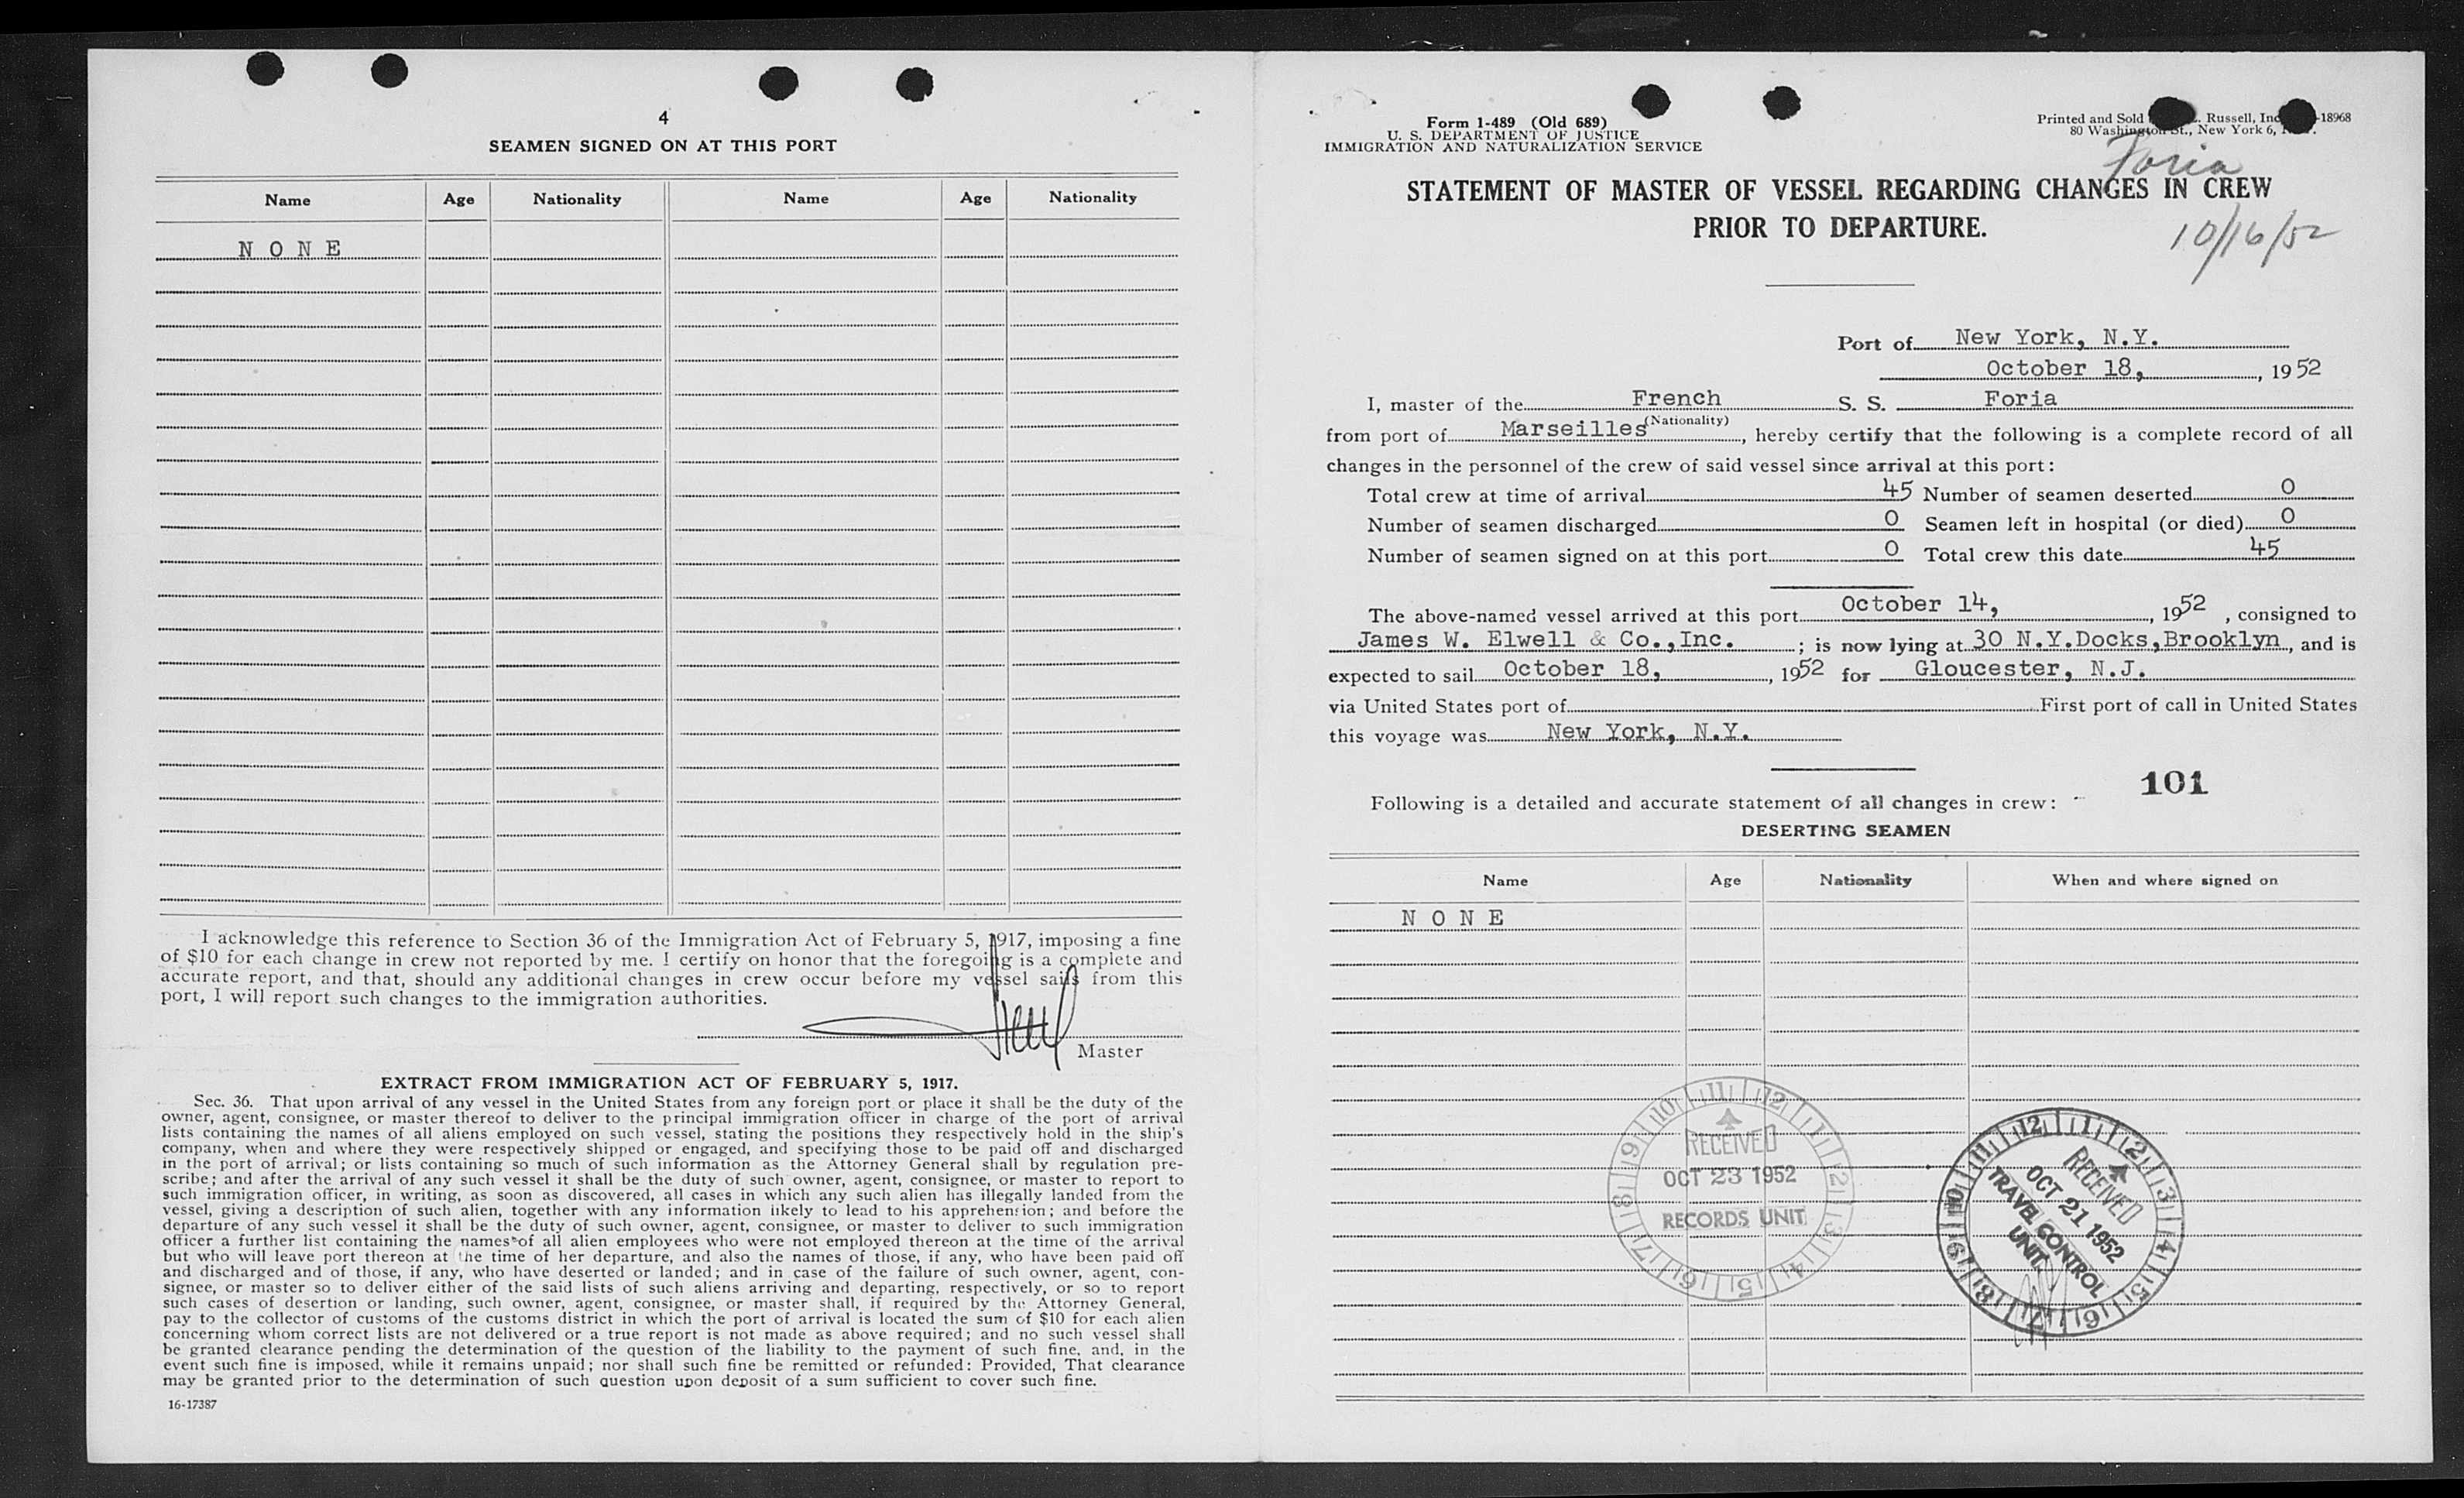 4
SEAMEN SIGNED ON AT THIS PORT
Name Age Nationality Name Age Nationality
N O N E
I acknowledge this reference to Section 36 of the Immigration Act of February 5, 1917, imposing a fine
of $10 for each change in crew not reported by me. I certify on honor that the foregoing is a complete and
accurate report, and that, should any additional changes in crew occur before my vessel sails from this
port, I will report such changes to the immigration authorities.
Master
EXTRACT FROM IMMIGRATION ACT OF FEBRUARY 5, 1917.
Sec. 36. That upon arrival of any vessel in the United States from any foreign port or place it shall be the duty of the
owner, agent, consignee, or master thereof to deliver to the principal immigration officer in charge of the port of arrival
lists containing the names of all aliens employed on such vessel, stating the positions they respectively hold in the ship's
company, when and where they were respectively shipped or engaged, and specifying those to be paid off and discharged
in the port of arrival; or lists containing so much of such information as the Attorney General shall by regulation pre-
scribe; and after the arrival of any such vessel it shall be the duty of such owner, agent, consignee, or master to report to
such immigration officer, in writing, as soon as discovered, all cases in which any such alien has illegally landed from the
vessel, giving a description of such alien, together with any information likely to lead to his apprehension; and before the
departure of any such vessel it shall be the duty of such owner, agent, consignee, or master to deliver to such immigration
officer a further list containing the names of all alien employees who were not employed thereon at the time of the arrival
but who will leave port thereon at the time of her departure, and also the names of those, if any, who have been paid off
and discharged and of those, if any, who have deserted or landed; and in case of the failure of such owner, agent, con-
signee, or master so to deliver either of the said lists of such aliens arriving and departing, respectively, or so to report
such cases of desertion or landing, such owner, agent, consignee, or master shall, if required by the Attorney General,
pay to the collector of customs of the customs district in which the port of arrival is located the sum of $10 for each alien
concerning whom correct lists are not delivered or a true report is not made as above required; and no such vessel shall
be granted clearance pending the determination of the question of the liability to the payment of such fine, and, in the
event such fine is imposed, while it remains unpaid; nor shall such fine be remitted or refunded: Provided, That clearance
may be granted prior to the determination of such question upon deposit of a sum sufficient to cover such fine.
16-17387
Form 1-489 (Old 689)
U. S. DEPARTMENT OF JUSTICE
IMMIGRATION AND NATURALIZATION SERVICE
Printed and Sold Russell, Inc -18968
80 Washington St., New York 6,
Foria
STATEMENT OF MASTER OF VESSEL REGARDING CHANGES IN CREW
PRIOR TO DEPARTURE.
10/16/52
Port of New York, N.Y.
October 18, , 1952
I, master of the French S. S. Foria
(Nationality)
from port of Marseilles, hereby certify that the following is a complete record of all
changes in the personnel of the crew of said vessel since arrival at this port:
Total crew at time of arrival 45 Number of seamen deserted 0
Number of seamen discharged 0 Seamen left in hospital (or died) 0
Number of seamen signed on at this port 0 Total crew this date 45
The above-named vessel arrived at this port October 14, , 1952 , consigned to
James W. Elwell & Co.,Inc. ; is now lying at 30 N.Y.Docks,Brooklyn, and is
expected to sail October 18, , 1952 for Gloucester, N.J.
via United States port of First port of call in United States
this voyage was New York, N.Y.
101
Following is a detailed and accurate statement of all changes in crew:
DESERTING SEAMEN
Name Age Nationality When and where signed on
N O N E
11 12 1 2 3 4 5 6 7 8 9 10
RECEIVED
OCT 23 1952
RECORDS UNIT
12 1 2 3 4 5 6 7 8 9 10 11
RECEIVED
OCT 21 1952
TRAVEL CONTROL
UNIT